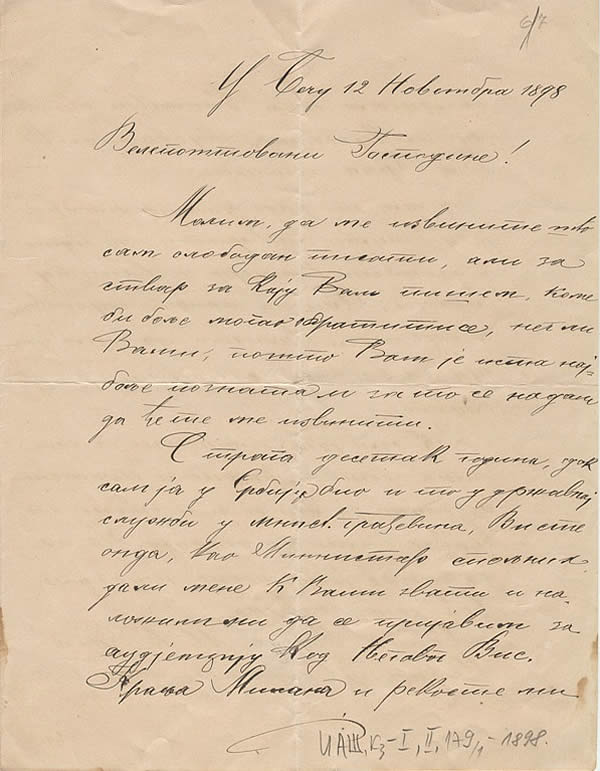 6/7
У Бечу 12 Новембра 1898
Велепоштовани Господине!
Молим, да ме извините што
сам слободан писати, али за
ствар за коју Вам пишем, коме
би боље могао обратити се, него ли
Вами, пошто Вам је иста нај-
боље позната и зато се надам
да ћете ме извинити.
С траѓа десетак година, док
сам ја у Србији био и то у државној
служби у минист. грађевина, Ви сте
онда, као Министар спољних
дали мене к Вами звати и на-
ложили ми да се пријавим за
аудјенцију код Његовог Вис.
Краља Милана и рекосте ми
ИАШ, К3-I, II, 179/1-1898.